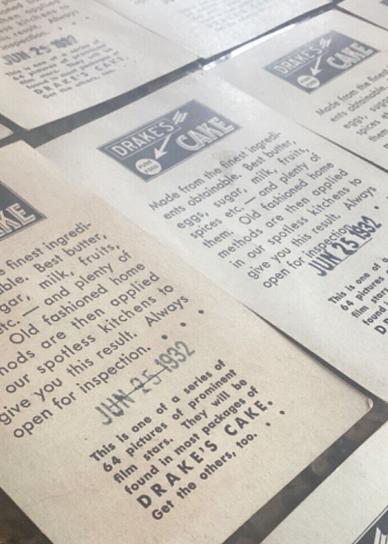 JUN 25 1932
This is one of a series of
64 pictures of prominent
film stars. They will be
found in most packages of
DRAKE'S CAKE.
Get the others, too. . .
DRAKE'S
CAKE
Made from the finest
ents obtainable.
eggs, sugar,
spices etc.
them.
methods
in our
DRAKE'S
CAKE
Made from the finest ingredi-
ents obtainable. Best butter,
eggs, sugar, milk, fruits,
spices etc. — and plenty of
them. Old fashioned home
methods are then applied
in our spotless kitchens to
give you this result. Always
open for inspection.
JUN 25 1932
This is one of a
64 pictures of
film stars.
found in most
finest ingredi-
Best butter,
milk, fruits,
etc. — and plenty of
Old fashioned home
are then applied
our spotless kitchens to
give you this result. Always
open for inspection. . . .
JUN 25 1932
This is one of a series of
64 pictures of prominent
film stars. They will be
found in most packages of
DRAKE'S CAKE.
Get the others, too. . .